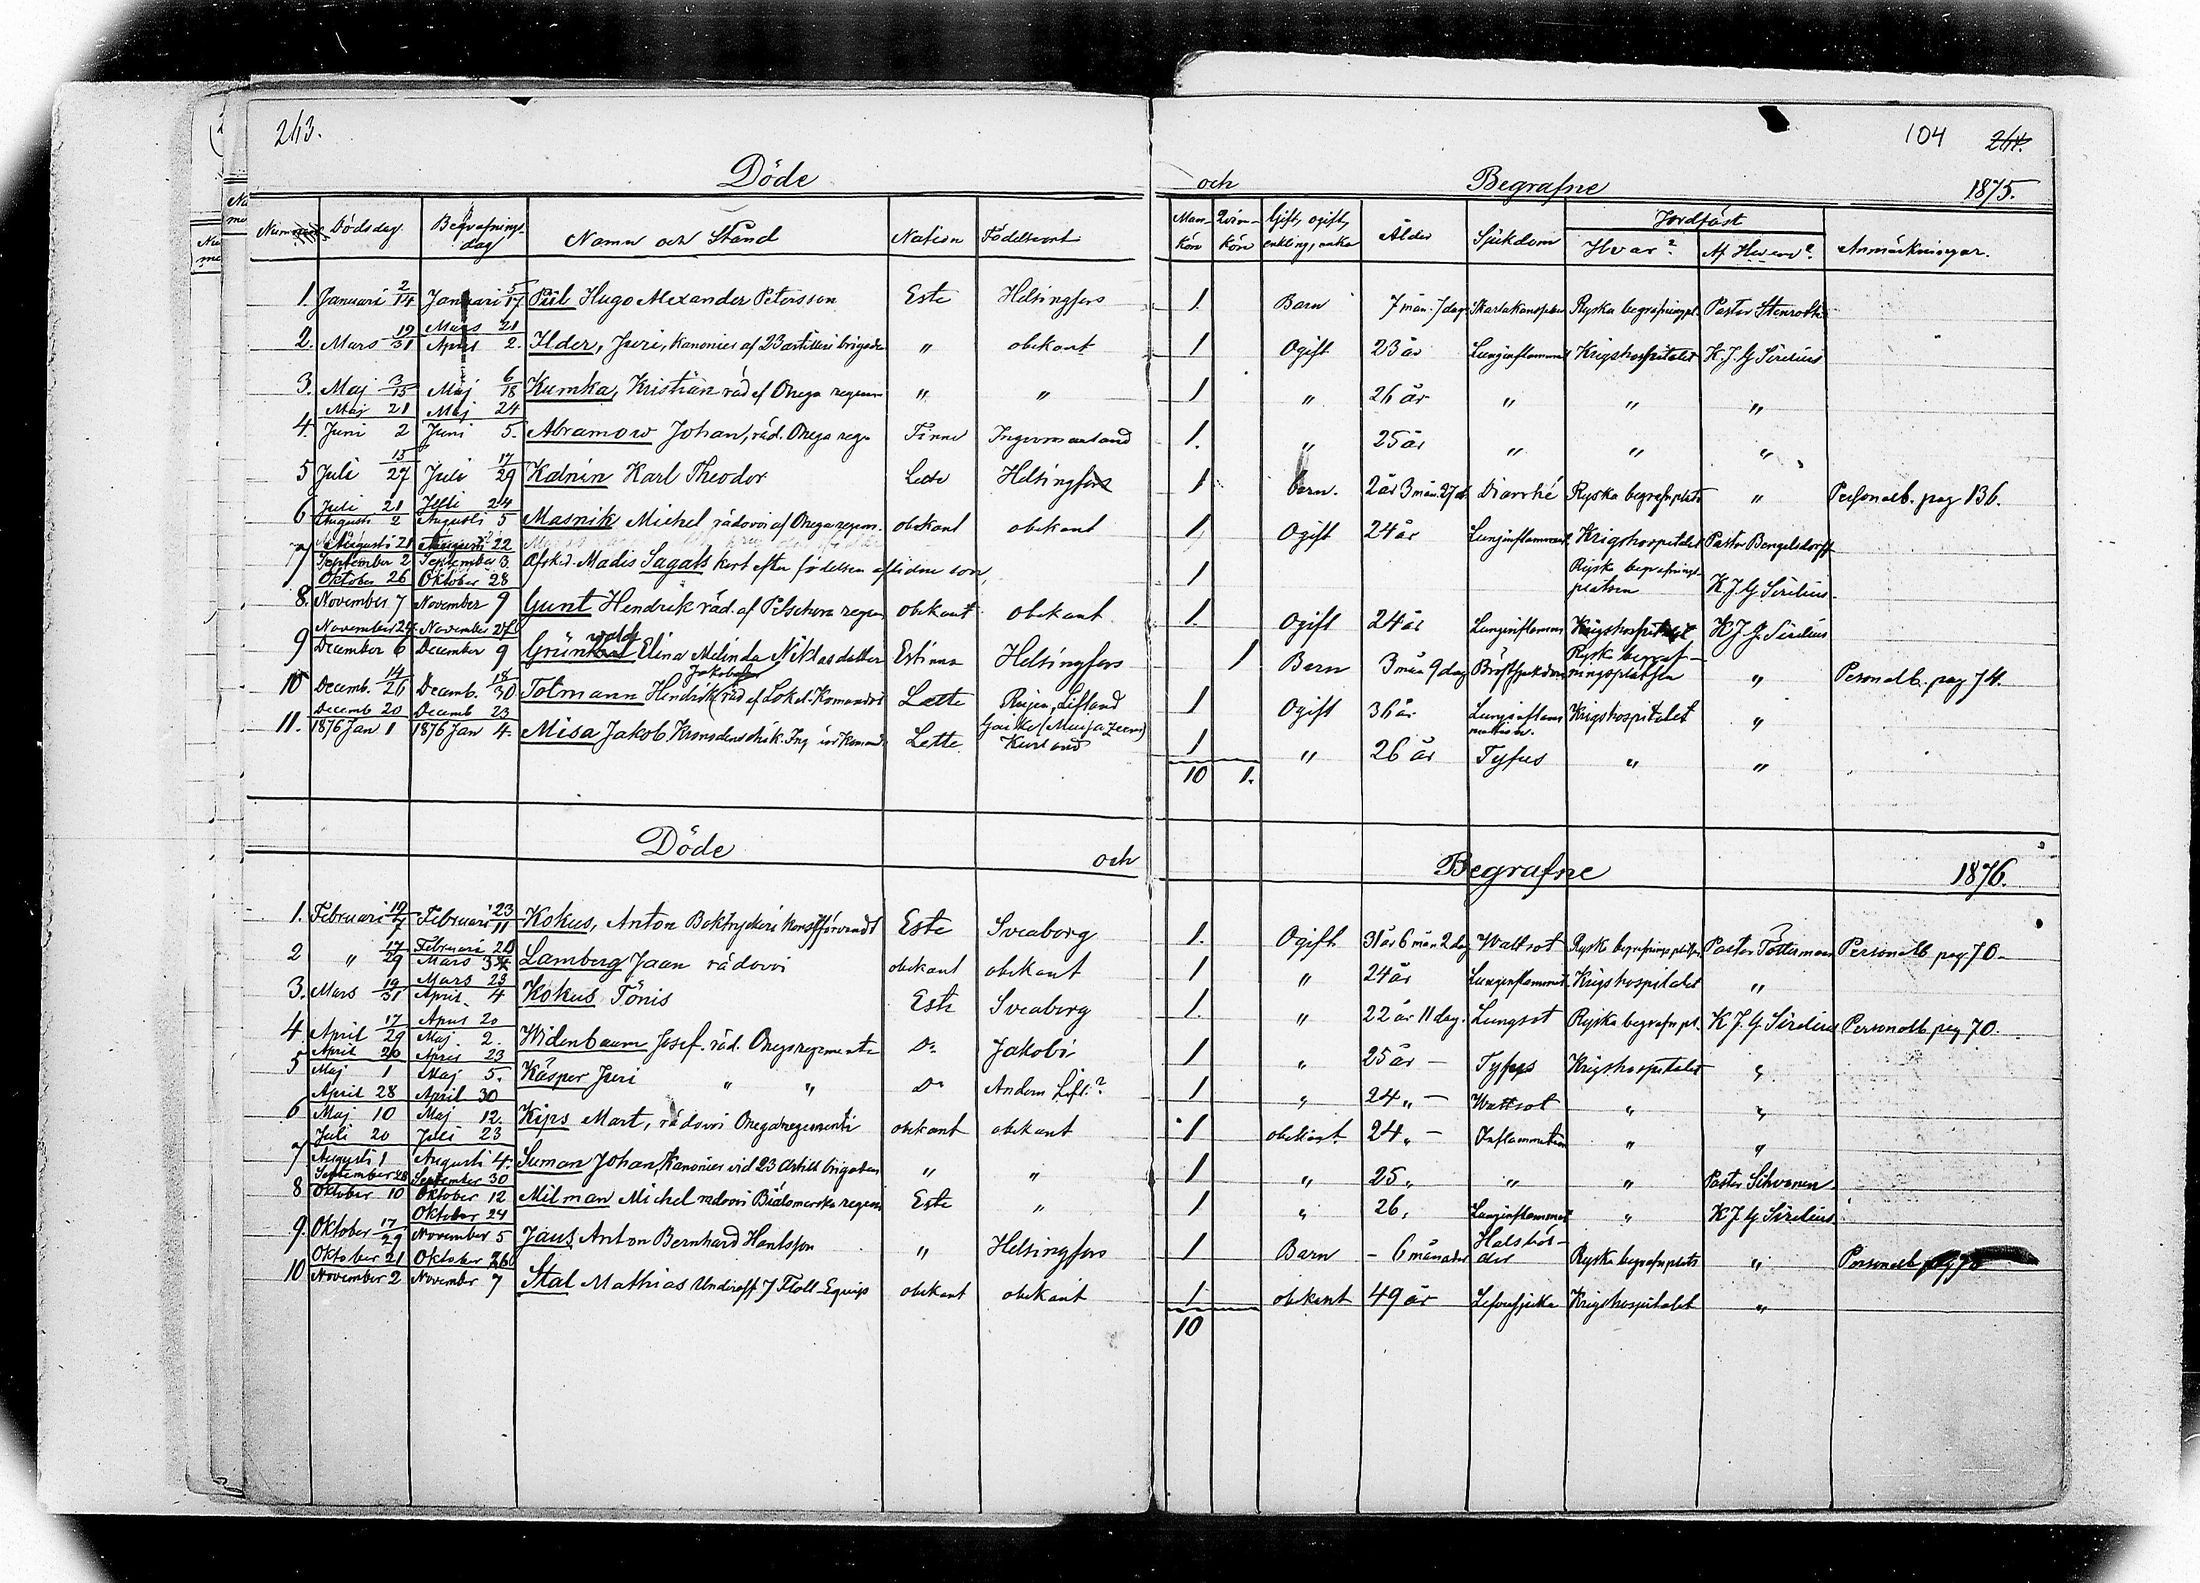 263.
104 264.
Döde och Begrafne 1875.
Nummer Dödsdag Begrafnings-dag Namn och Stånd Nation Födelseort Man-kön Qvin-kön Gift, ogift, enkling, enka Ålder Sjukdom Jordfäst Hvar? Af Hvem? Anmärkningar.
1. Januari 2/14 Januari 5/17 Piil Hugo Alexander Petersson Este Helsingfors 1. Barn 7 mån. 7 dag. Ryska begrafningspl. Pastor Stenroth
2. Mars 19/31 Mars 21 April 2. Ilder, Juri, kanonier af 23 artilleri brigaden " obekant 1 Ogift 23 år Lunginflammat. Krigshospitalet K. J. G. Sirelius
3. Maj 3/15 Maj 6/18 Kumka, Kristian råd af Onega regem " " 1 " 26 år " " "
4. Maj 21 Juni 2 Maj 24 Juni 5. Abramow Johan, råd. Onega reg. Finne Ingermanland 1. " 25 år " " "
5 Juli 15/27 Juli 17/29 Kalnin Karl Theodor Lette Helsingfors 1 barn. 2 år 3 mån. 27 d. Diarrhé Ryska begrafnplats " Personalb. pag 136.
6 Juli 21 Augusti 2 Juli 24 Augusti 5 Masnik Michel rådovoi af Onega regem. obekant obekant 1 Ogift 24 år Lunginflammat. Krigshospitalet Pastor Bengelsdorff
7 Augusti 21 September 2 Augusti 22 September 3. Afsked. Madis Sagals kort efter födelsen aflidne son, 1 Ryska begrafnings-platsen K. J. G. Sirelius.
8. Oktober 26 November 7 Oktober 28 November 9 Gunt Hendrik råd. af Petschora regem obekant obekant 1. Ogift 24 år Lunginflamm Krigshospitalet K J. G. Sirelius
9 November 24 December 6 November 27 December 9 Grünwald Elina Melinda Niklasdotter Estinna Helsingfors 1 Barn 3 mån 9 dag Bröstsjukdom Rysk begraf-ningsplatsen " Personalb. pag 74.
10 Decemb. 14/26 Decemb. 18/30 Totmann Hendrik råd af Lokal. Komandot Lette Rujen, Lifland 1 Ogift 36 år Krigshospitalet "
11. Decemb 20 1876 Jan 1 Decemb 23 1876 Jan 4. Misa Jakob Lette Kurland 1 " 26 år Tyfus " "
10 1.
Döde och Begrafne 1876.
1. Februari 19/7 Februari 23/11 Kokus, Anton Boktryckeri konstförvandt Este Sveaborg 1. Ogift 31 år 6 mån 2 dag Wattsot Rysk begrafnings platsen Pastor Töttermann Personalb. pag. 70.
2 " 17/29 Februari 20 Mars Lamberg Jaan rådovoi obekant obekant 1 " 24 år Lunginflammat. Krigshospitalet "
3. Mars 19/31 Mars 23 April 4 Kokus Tönis Este Sveaborg 1. " 22 år 11 dag. Lungsot Ryska begrafn pl. K. J. G. Sirelius Personalb. pag 70.
4. April 17/29 April 20 Maj. 2. Widenbaum Josef. råd. Onegaregemente Do Jakobi 1 " 25 år – Tyfus Krigshospitalet "
5 April 20 Maj 1 April 23 Maj 5. Käsper Juri " " Do Andern Lifl.? 1 " 24 " – Wattsot " "
6 April 28 Maj 10 April 30 Maj 12. Kips Mart, rådovoi Onegaregementi obekant obekant 1 obekant. 24 " – Inflammation " "
7 Juli 20 Augusti 1 Juli 23 Augusti 4. Suman Johan, Kanonier vid 23 Artill brigaden " " 1 " 25 " " " Pastor Sihvonen.
8 September 28 Oktober 10 September 30 Oktober 12 Milman Michel radovoi Bialomorska regem Este " 1 " 26, Lunginflammat " K J G Sirelius
9. Oktober 17/29 Oktober 24 November 5 Jaus Anton Bernhard Hantsson " Helsingfors 1 Barn – 6 månader Ryska begrafnplats " Personalb pag 70
10 Oktober 21 November 2 Oktober 26 November 7 Stal Mathias Underoff 7 Flott-Equip obekant obekant 1 obekant 49 år Lefversjuka Krigshospitalet "
10